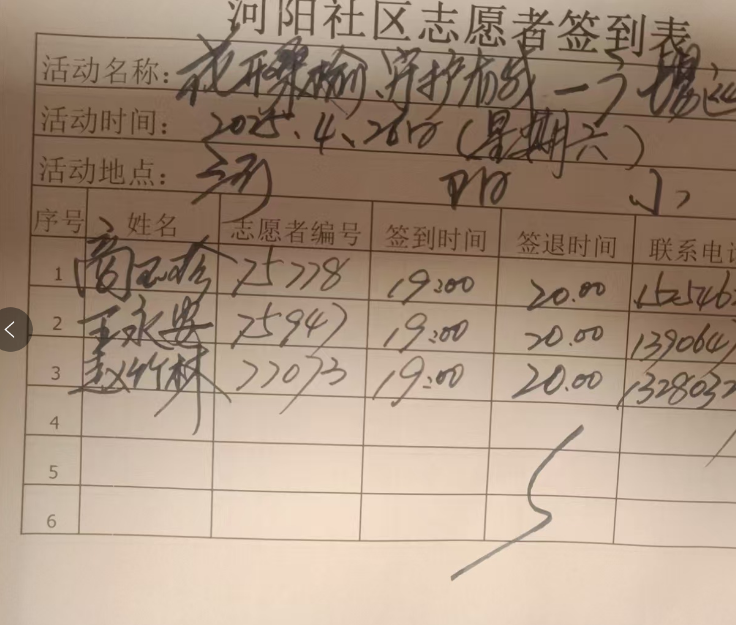 河阳社区志愿者签到表
活动名称：花开桑榆、守护有我一广场巡
活动时间：2025.4、26日（星期六）
活动地点：河 阳 小
序号 姓名 志愿者编号 签到时间 签退时间 联系电话
1 75778 19:00 20.00 152546
2 王永安 75947 19:00 20.00 139064
3 赵竹林 77073 19:00 20.00 1328032
4
5
6